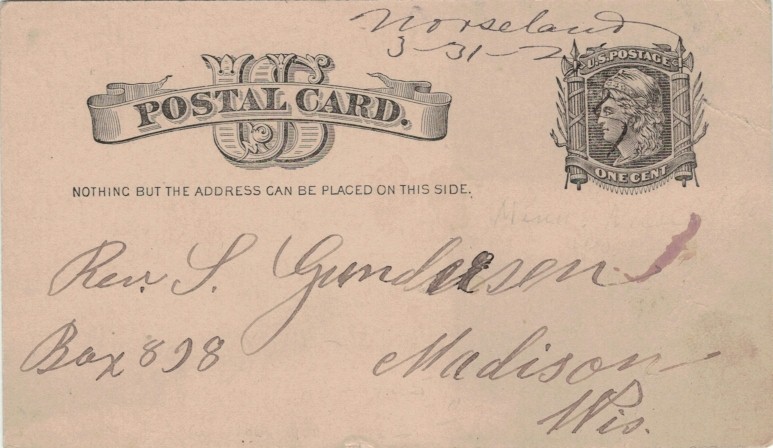 Norseland
3-31-2
US
POSTAL CARD.
U.S. POSTAGE
ONE CENT
NOTHING BUT THE ADDRESS CAN BE PLACED ON THIS SIDE.
Rev. S. Gundersen
Box 898
Madison
Wis.